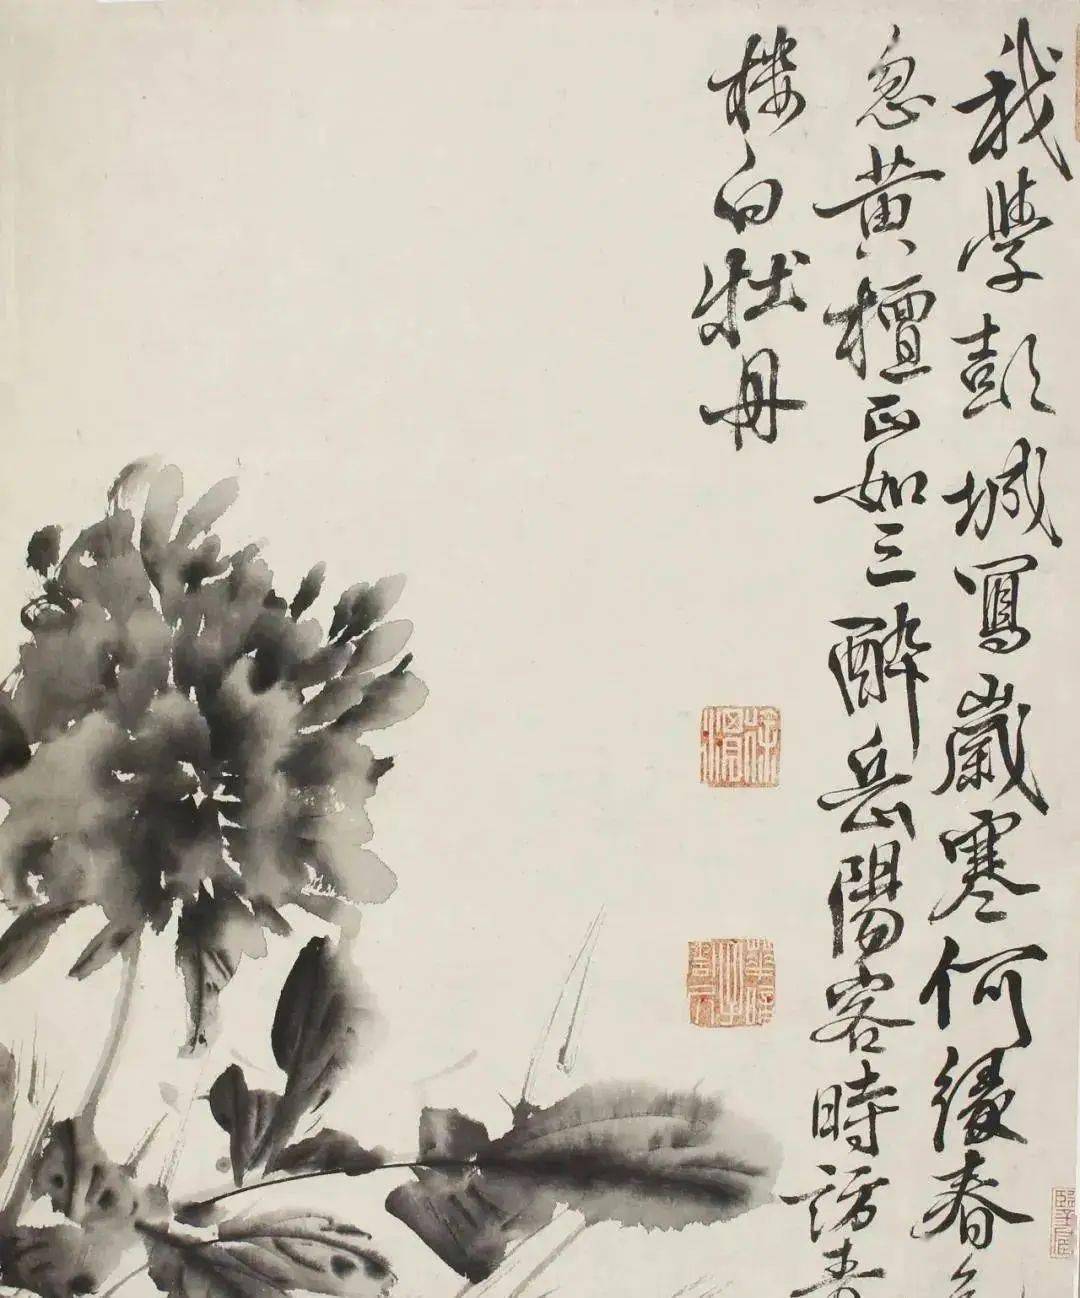 我學彭城寫歲寒何緣春
忽黃檀正如三醉岳陽客時訪青
樓白牡丹
徐渭